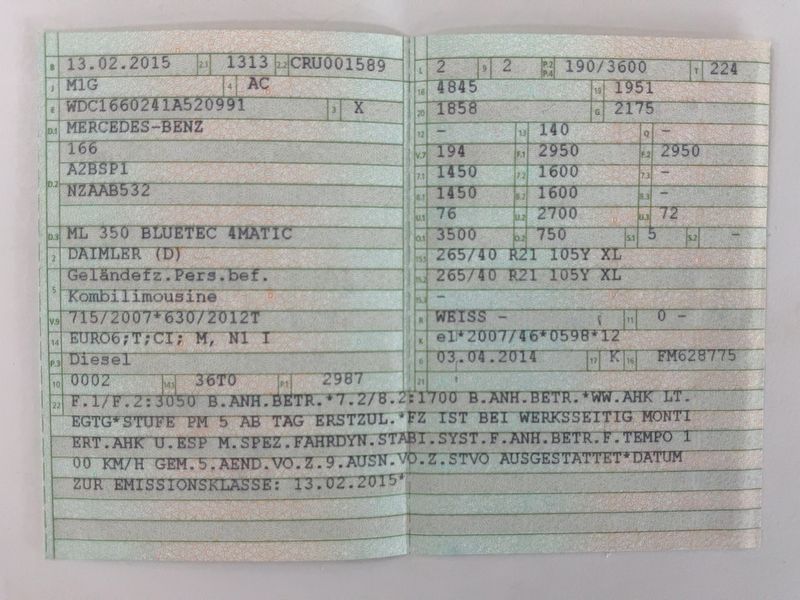 B 13.02.2015 2.1 1313 2.2 CRU001589
J M1G 4 AC
E WDC1660241A520991 3 X
D.1 MERCEDES-BENZ
166
D.2 A2BSP1
NZAAB532
D.3 ML 350 BLUETEC 4MATIC
2 DAIMLER (D)
5 Geländefz.Pers.bef.
Kombilimousine
V.9 715/2007*630/2012T
14 EURO6;T;CI; M, N1 I
P.3 Diesel
10 0002 14.1 36T0 P.1 2987
L 2 9 2 P.2 P.4 190/3600 T 224
18 4845 19 1951
20 1858 G 2175
12 - 13 140 Q -
V.7 194 F.1 2950 F.2 2950
7.1 1450 7.2 1600 7.3 -
8.1 1450 8.2 1600 8.3 -
U.1 76 U.2 2700 U.3 72
O.1 3500 O.2 750 S.1 5 S.2 -
15.1 265/40 R21 105Y XL
15.2 265/40 R21 105Y XL
15.3 -
R WEISS - 11 0 -
K e1*2007/46*0598*12
6 03.04.2014 17 K 16 FM628775
21
22 F.1/F.2:3050 B.ANH.BETR.*7.2/8.2:1700 B.ANH.BETR.*WW.AHK LT.
EGTG*STUFE PM 5 AB TAG ERSTZUL.*FZ IST BEI WERKSSEITIG MONTI
ERT.AHK U.ESP M.SPEZ.FAHRDYN.STABI.SYST.F.ANH.BETR.F.TEMPO 1
00 KM/H GEM.5.AEND.VO.Z.9.AUSN.VO.Z.STVO AUSGESTATTET*DATUM
ZUR EMISSIONSKLASSE: 13.02.2015*